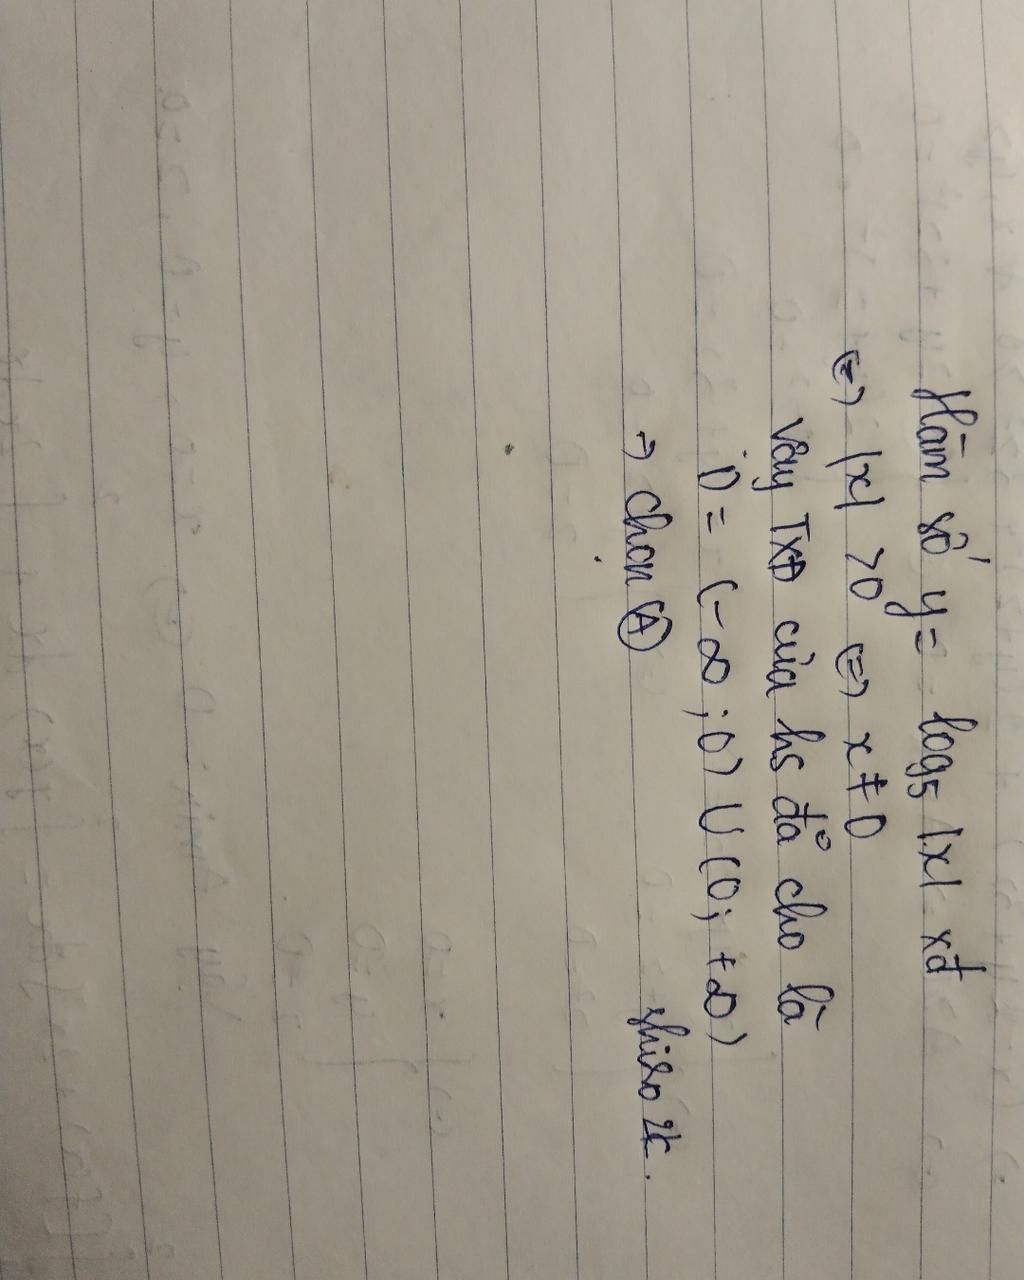 Hàm số y = log₅ |x| xđ
⇔ |x| > 0 ⇔ x ≠ 0
Vậy TXĐ của hs đã cho là
D = (-∞ ; 0) ∪ (0 ; +∞)
⇒ chọn Ⓐ